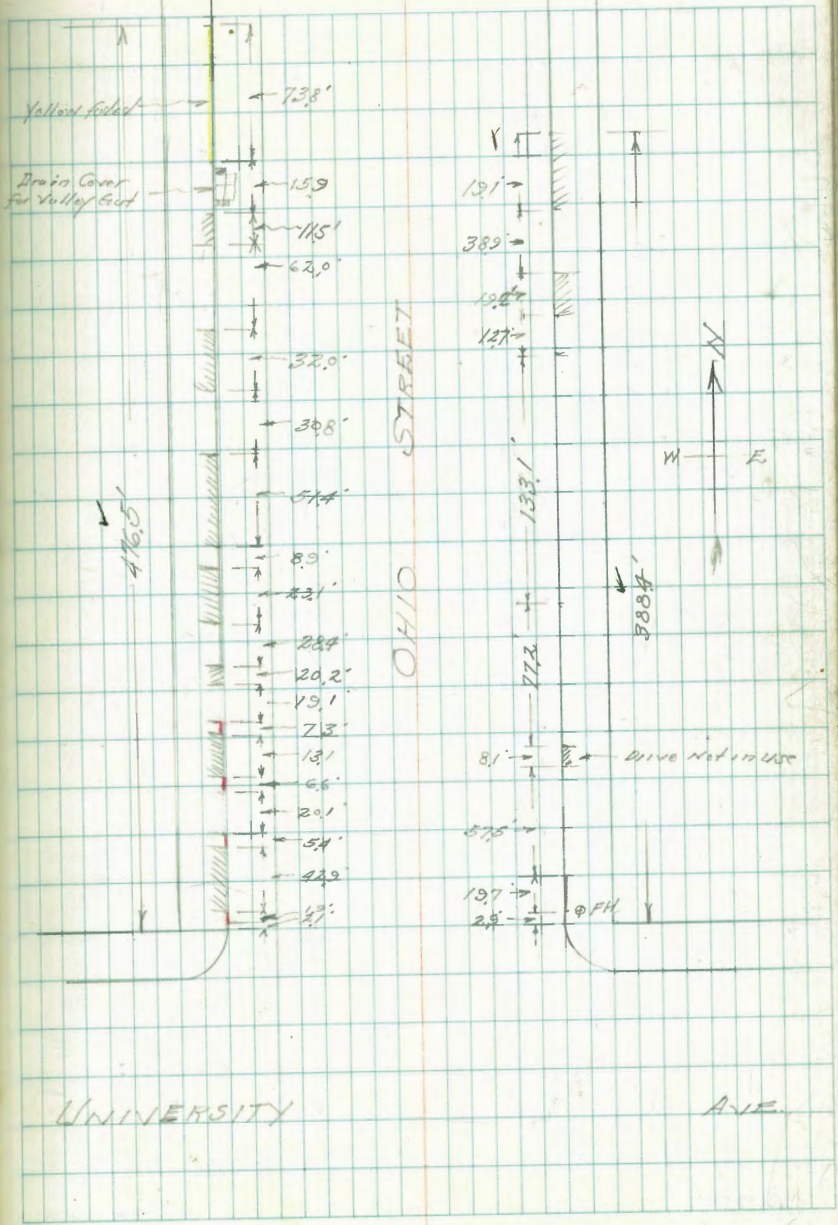 Yellow faded
Drain Cover
for Valley Gut
73.8'
15.9
11.5'
62.0'
32.0'
30.8'
51.4'
8.9'
23.1'
28.4
20.2'
19.1
7.3'
13.1
6.6'
20.1
5.4'
42.9'
2.1'
476.5'
OHIO STREET
19.1'
38.9'
12.7'
133.1'
77.2'
8.1'
57.5'
19.7
2.9'
Drive Not in Use
FH
388.4'
N
W
E
UNIVERSITY AVE.